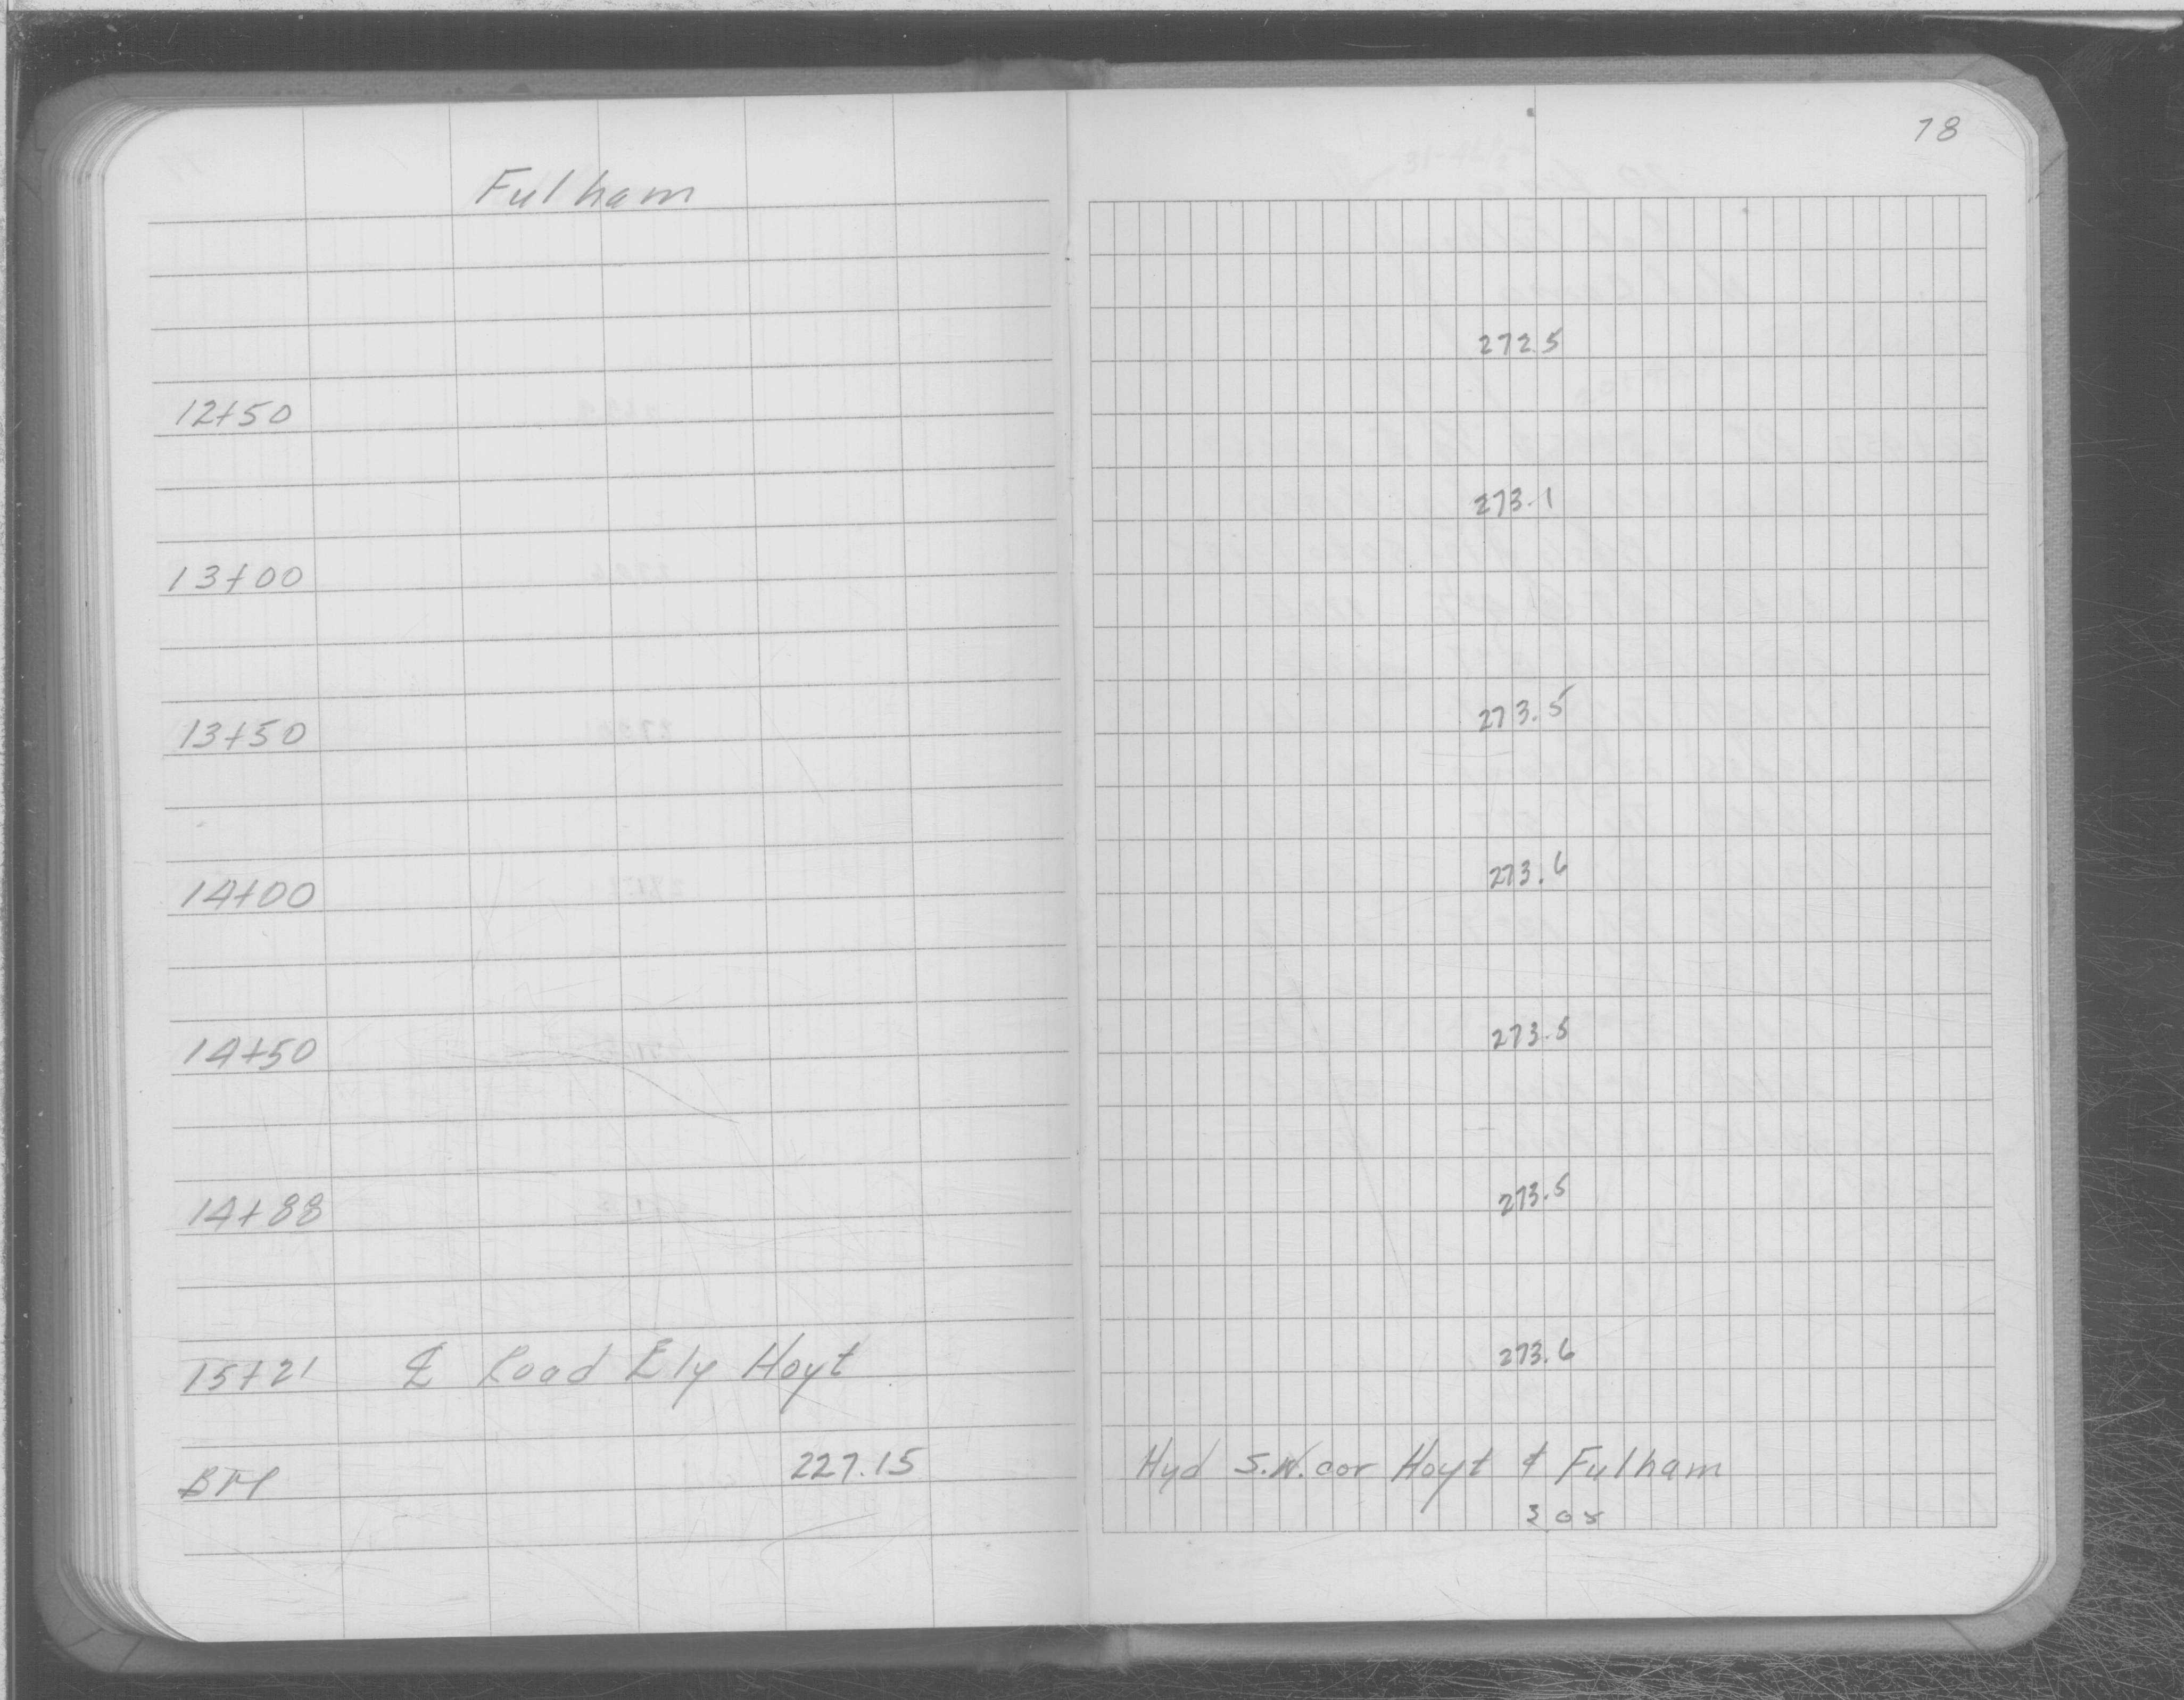 78
Fulham
272.5
12+50
273.1
13+00
273.5
13+50
273.6
14+00
273.5
14+50
273.5
14+88
273.6
15+21 ℄ Road Ely Hoyt
BM 227.15 Hyd S.W. cor Hoyt & Fulham